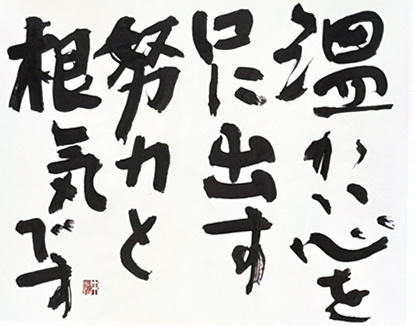 温かい心を
口に出す
努力と
根気です